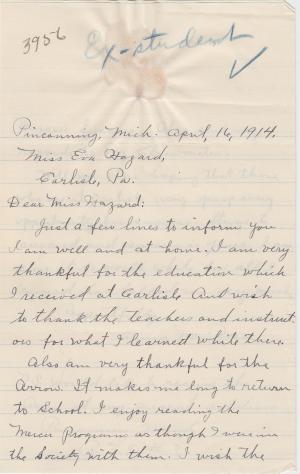 3956
Ex-student ✓
Pinconning, Mich. April, 16, 1914.
Miss Eva Hazard,
Carlisle, Pa.
Dear Miss Hazard:
Just a few lines to inform you
I am well and at home. I am very
thankful for the education which
I received at Carlisle And wish
to thank the teachers and instruct
ors for what I learned while there.
Also am very thankful for the
Arrow. It makes me long to return
to School. I enjoy reading the
Mercer Programs as though I were in
the Society with them. I wish the